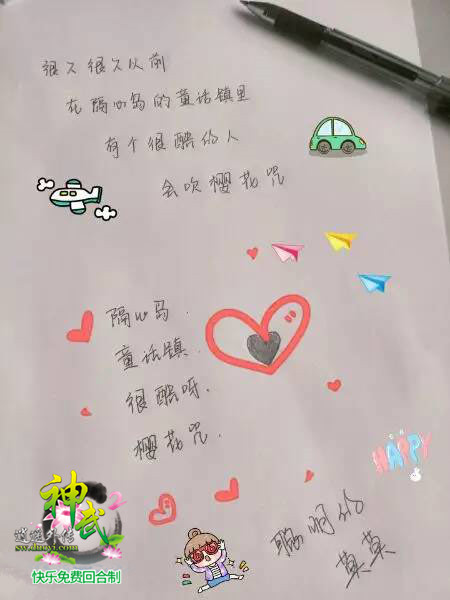 很久很久以前
在隔心岛的童话镇里
有个很酷的人
会吹樱花咒
隔心岛.
童话镇.
很酷呀.
樱花咒.
HAPPY
聪明的
莫莫
神武2
逍遥外传
sw.duoyi.com
快乐免费回合制